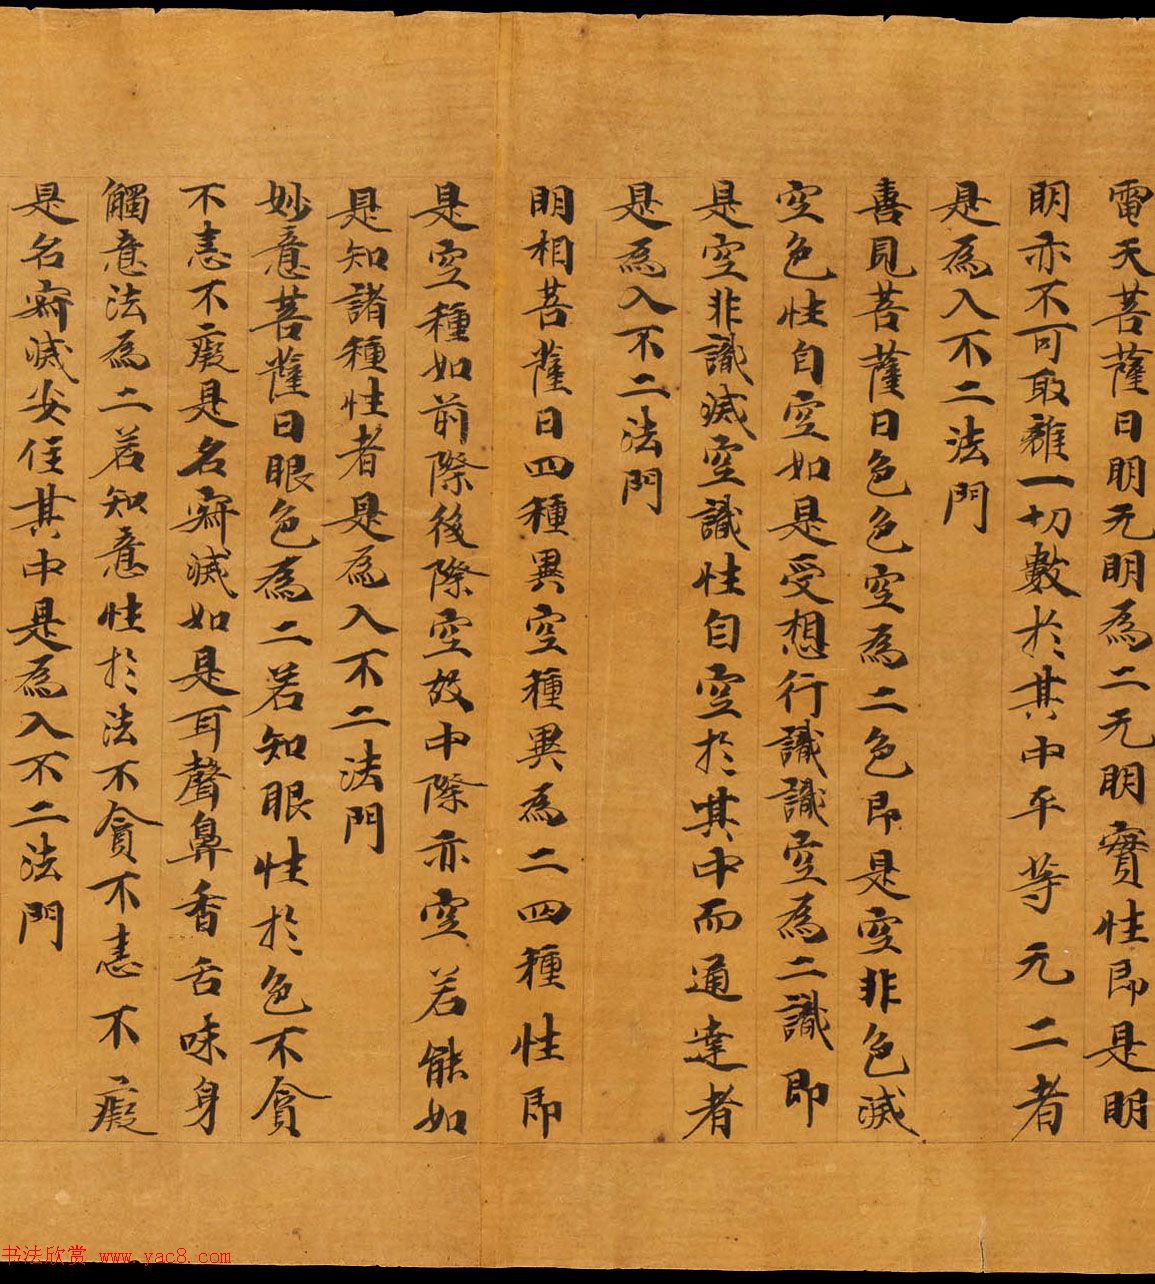 電天菩薩曰明无明為二无明實性即是明
明亦不可取離一切數於其中平等无二者
是為入不二法門
喜見菩薩曰色色空為二色即是空非色滅
空色性自空如是受想行識識空為二識即
是空非識滅空識性自空於其中而通達者
是為入不二法門
明相菩薩曰四種異空種異為二四種性即
是空種如前際後際空故中際亦空若能如
是知諸種性者是為入不二法門
妙意菩薩曰眼色為二若知眼性於色不貪
不恚不癡是名寂滅如是耳聲鼻香舌味身
觸意法為二若知意性於法不貪不恚不癡
是名寂滅安住其中是為入不二法門
书法欣赏 www.yac8.com